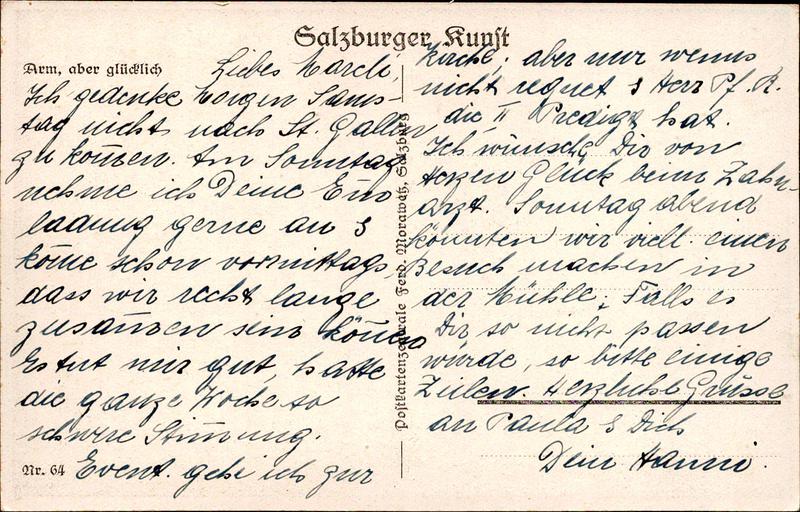 Salzburger Kunst
Arm, aber glücklich
Liebes Marcli,
Ich gedenke Morgen Sams-
tag nicht nach St. Gallen
zu kom̄en. Am Sonntag
nehme ich Deine Ein
ladung gerne an &
kom̄e schon vormittags
dass wir recht lange
zusam̄en sein kön̄en
Es tut mir gut, hatte
die ganze Woche so
schwere Stim̄ung.
Nr. 64
Event. gehe ich zur
Postkartenzentrale Ferd. Morawetz, Salzburg
Kirche, aber nur wenns
nicht regnet & Herr Pf. R.
die II Predigt hat.
Ich wünsche Dir von
Herzen Glück beim Zahn-
arzt. Sonntag abend
könnten wir viell. einen
Besuch machen in
der Mühle; Falls es
Dir so nicht passen
würde, so bitte einige
Zeilen. Herzliche Grüsse
an Paula & Dich
Dein Hanni.